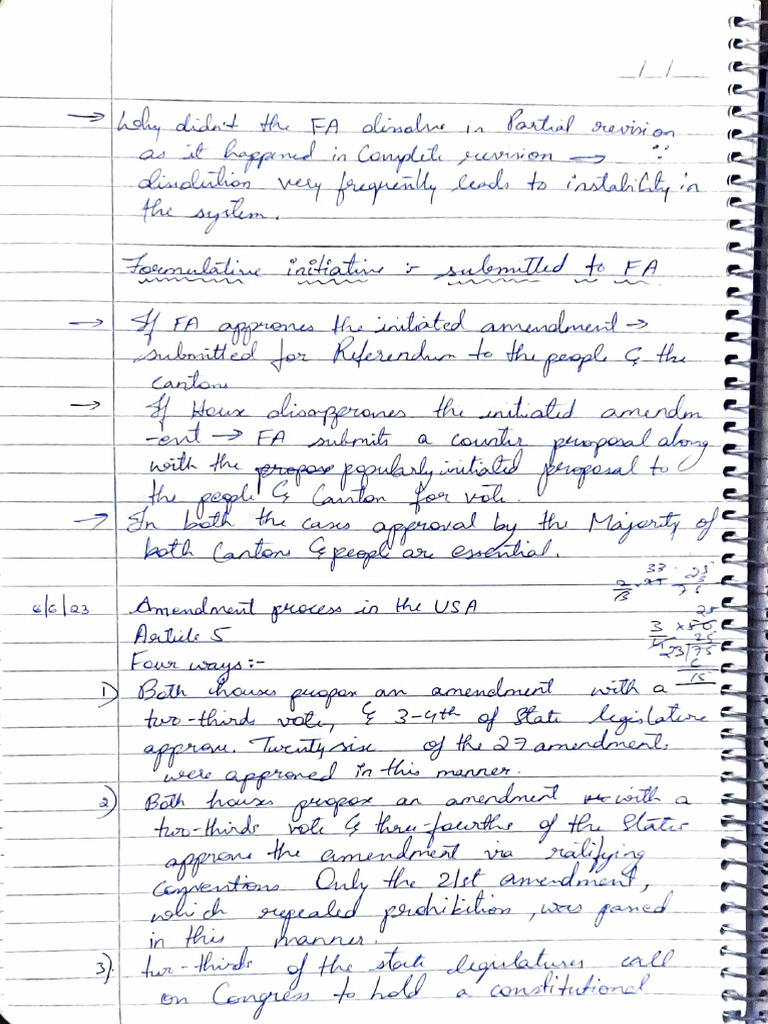 _/_/_
→ Why didn't the FA dissolve in Partial revision
as it happened in Complete revision →
dissolution very frequently leads to instability in
the system.
Formulative initiative :- submitted to FA
→ If FA approves the initiated amendment →
submitted for Referendum to the people & the
cantons
→ If House disapproves the initiated amendm
-ent → FA submits a counter proposal along
with the popularly initiated proposal to
the people & Canton for vote.
→ In both the cases approval by the Majority of
both Cantons & people are essential.
6/6/23 Amendment process in the USA
Article 5
Four ways:-
1) Both houses propose an amendment with a
two-thirds vote, & 3-4th of State legislature
approve. Twenty six of the 27 amendments
were approved in this manner.
2) Both houses propose an amendment with a
two-thirds vote & three-fourths of the States
approve the amendment via ratifying
conventions. Only the 21st amendment,
which repealed prohibition, was passed
in this manner.
3). two-thirds of the state legislatures call
on Congress to hold a constitutional